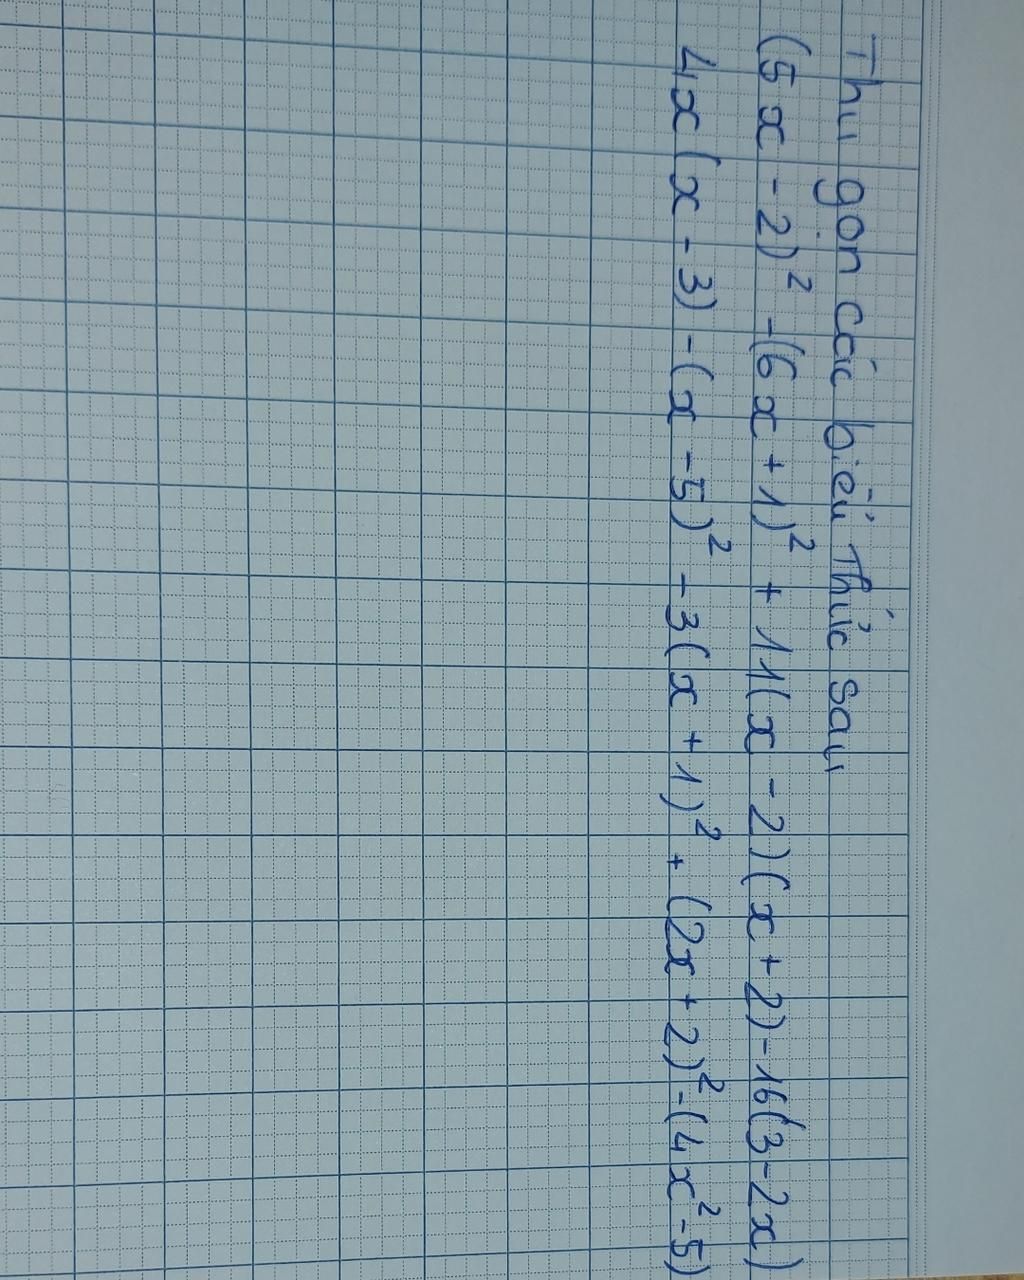 Thu gọn các biểu thức sau
(5x - 2)² - (6x + 1)² + 11(x - 2)(x + 2) - 16(3 - 2x)
4x(x - 3) - (x - 5)² - 3(x + 1)² + (2x + 2)² - (4x² - 5)